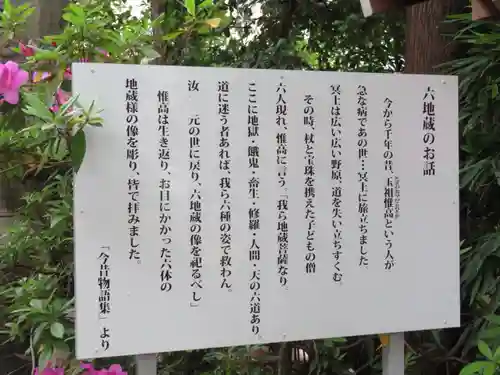 六地蔵のお話
今から千年の昔、玉祖惟高という人が
急な病であの世…冥土に旅立ちました。
冥土は広い広い野原、道を失い立ちすくむ。
その時、杖と宝珠を携えた子どもの僧
六人現れ、惟高に言う。「我ら地蔵菩薩なり。
ここに地獄・餓鬼・畜生・修羅・人間・天の六道あり。
道に迷う者あれば、我ら六種の姿で救わん。
汝 元の世に戻り、六地蔵の像を祀るべし」
惟高は生き返り、お目にかかった六体の
地蔵様の像を彫り、皆で拝みました。
「今昔物語集」より